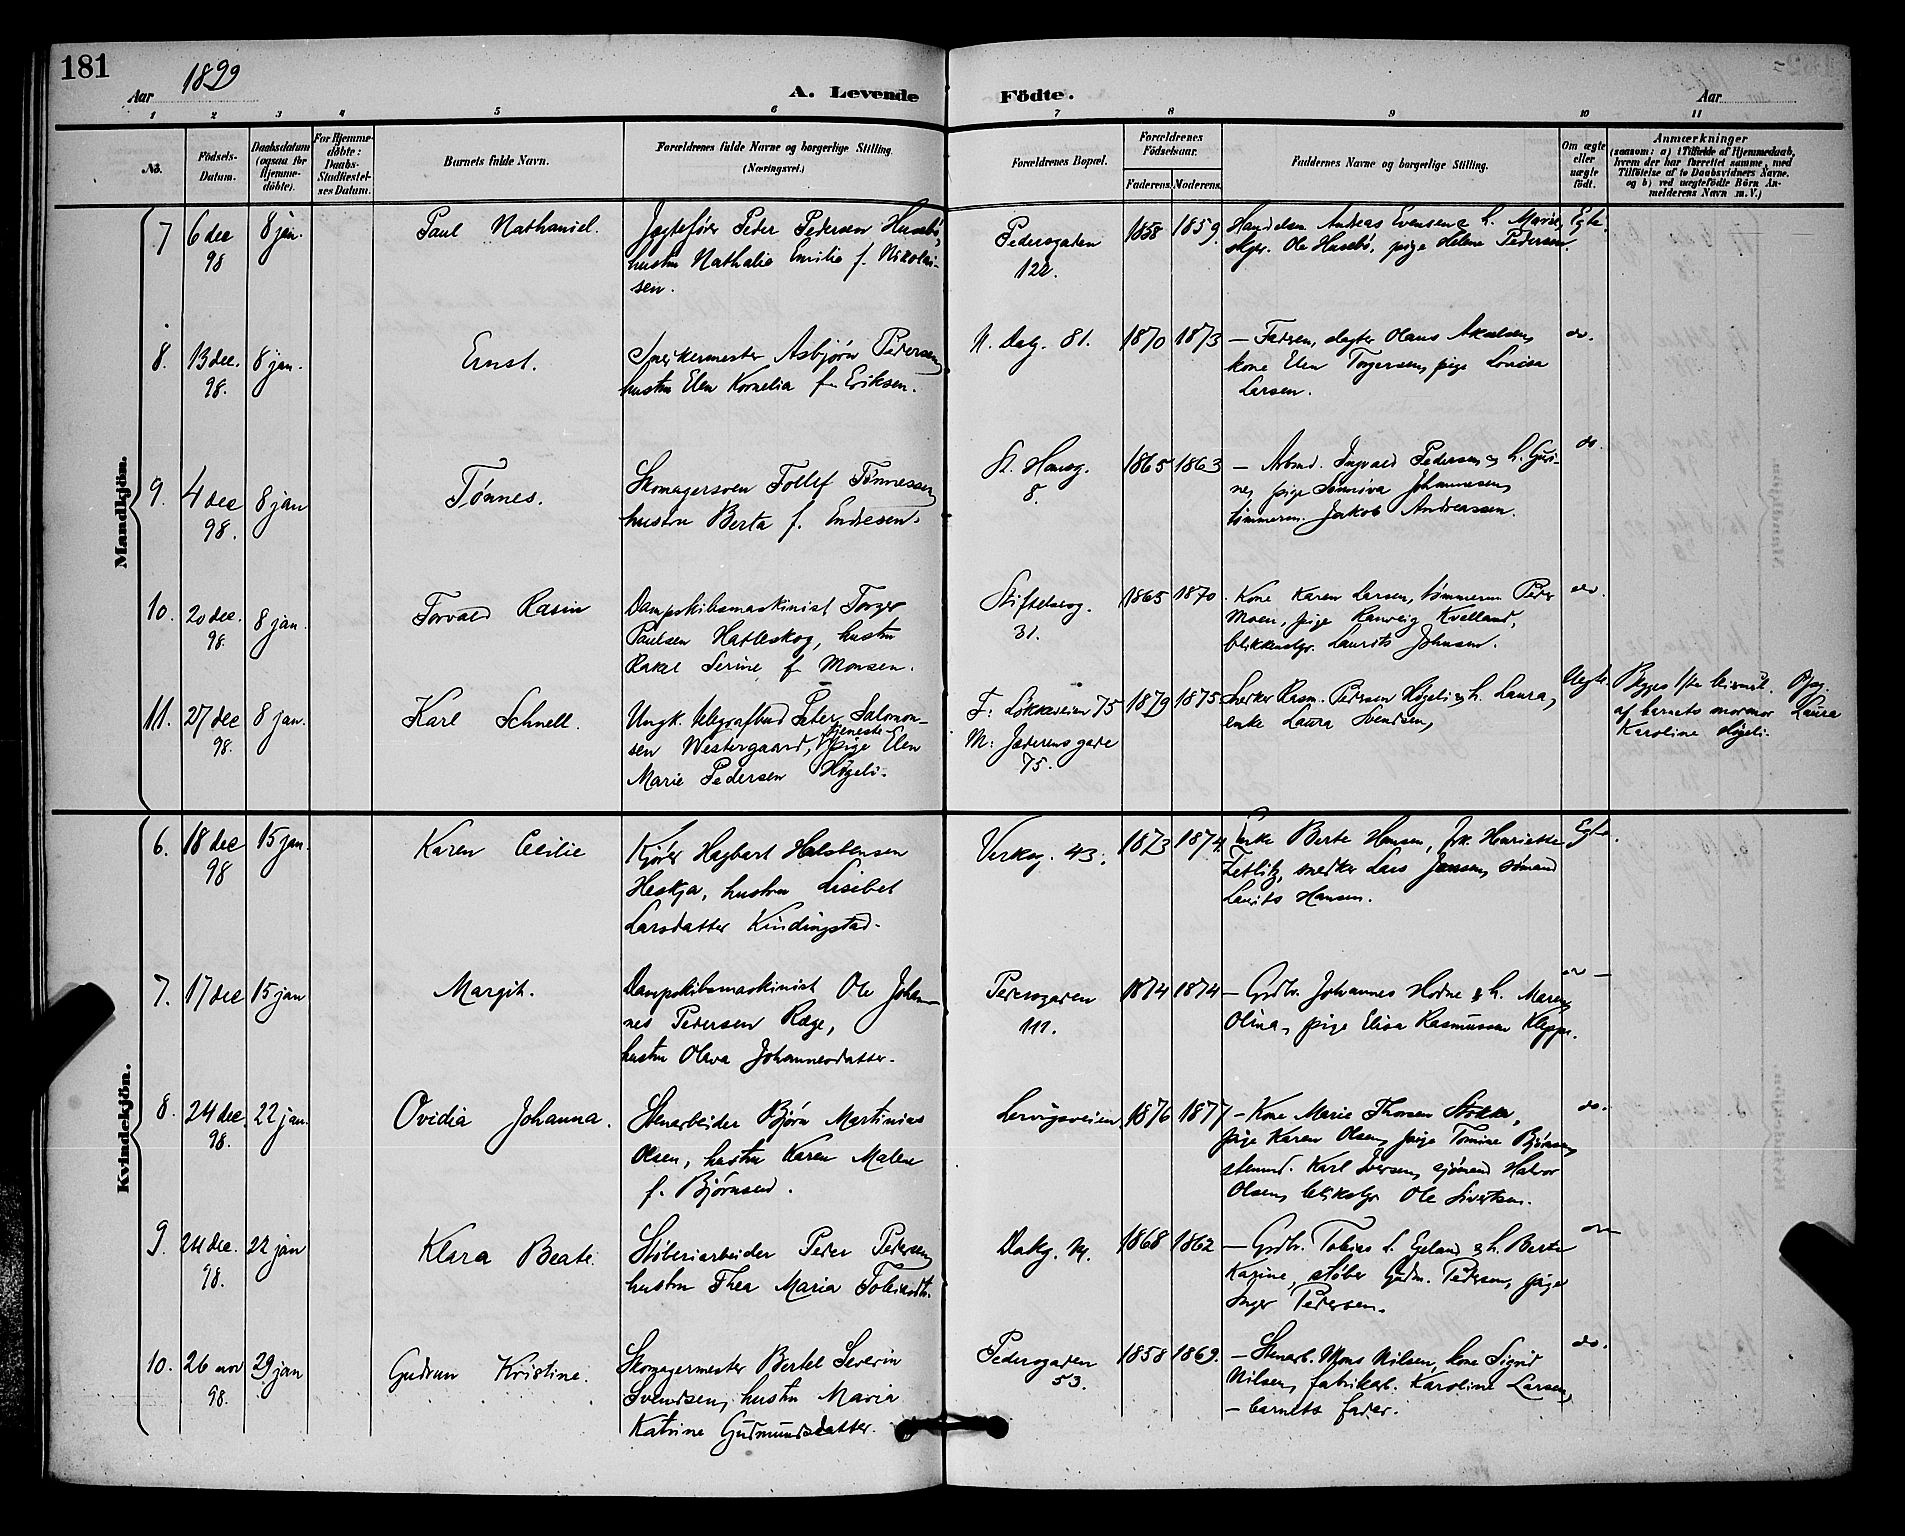 181
Aar 1899
A. Levende
Födte.
Aar
1 2 3 4 5 6 7 8 9 10 11
No.
Födsels-
Datum.
Daabsdatum
(ogsaa for
Hjemme-
döbte).
For Hjemme-
döbte:
Daabs-
Stadfæstel-
ses Datum.
Barnets fulde Navn.
Forældrenes fulde Navne og borgerlige Stilling.
(Næringsvei.)
Forældrenes Bopæl.
Forældrenes
Födselsaar.
Faderens. Moderens.
Faddernes Navne og borgerlige Stilling.
Om ægte
eller
uægte
født.
Anmærkninger
(saasom: a) i Tilfælde af Hjemmedaab,
hvem der har forrettet samme, med
Tilföielse af to Daabsvidners Navne.
og b) ved uægtefödte Börn An-
melderens Navn m. V.)
Mandkjön.
7 6 dec
98
8 jan.
Paul Nathaniel.
Jægtefører Peder Pedersen Husebø,
hustru Nathalie Emilie f. Nikolai-
sen.
Pedersgaden
122.
1858 1859.
Handelsm. Andreas Evensen & h. Marie,
Ole Husebø, pige Helene Pedersen.
Egte.
8. 13 dec.
98.
8 jan.
Ernst.
Snekkermester Asbjørn Pedersen,
hustru Elen Kornelia f. Eriksen.
N. Dalg. 81.
1870 1873
— Faderen, slagter Olaus Akselsen,
kone Elen Torgersen, pige Lovisa
Larsen.
do.
9. 4 dec
98.
8 jan
Tønnes.
Skomagersven Tollef Tønnessen,
hustru Berta f. Endresen.
St. Hansg.
8.
1865 1863
— Arbmd. Ingvald Pedersen & h. Guri-
ne, pige Sønniva Johannesen,
tømmerm. Jakob Andreassen.
do.
10. 20 dec.
98.
8 jan.
Torvald Rasin
Dampskibsmaskinist Torger
Paulsen Hatleskog, hustru
Rakel Serine f. Monsen.
Stiftelsesg.
31.
1865 1870
Kone Karen Larsen, tømmerm Peder
Moen, pige Ranveig Kvelland,
blikkenslgr. Laurits Johnsen.
do.
11. 27 dec
98.
8 jan.
Karl Schnell.
Ungk. telegrafbud Peter Salomon-
sen Westergaard, tjeneste-
pige Elen
Marie Pedersen Høgeli.
F: Løkkeveien 75
M: Jæderensgade
75.
1879 1875
Snekker Rasm. Pedersen Høgeli & h. Laura,
enke Laura Svendsen,
Uegte.
Begges 1ste leiermål.
af barnets mormor Laura
Karoline Høgeli.
Kvindekjön.
6. 18 dec
98
15 jan.
Karen Cecilie
Kjører Hagbart Halstensen
Heskja, hustru Lisebet
Larsdatter Kindingstad.
Verksg. 43.
1873 1874.
Enke Berte Hansen, frk. Henriette
Zetlitz, snedker Lars Jansen, sømand
Laurits Hansen.
Egte.
7. 17 dec 15 jan
Margit.
Dampskibsmaskinist Ole Johan-
nes Pedersen Ræge,
hustru Olava Johannesdatter.
Pedersgaden
111.
1874 1874
— Grdbr. Johannes Hodne & h. Maren
Olina, pige Elisa Rasmussen Kleppe.
do —
8. 24 dec.
98.
22 jan.
Ovidia Johanna.
Stenarbeider Bjørn Martinius
Olsen, hustru Karen Malene
f. Bjørnsen.
Lervigsveien
1876 1877
— Kone Marie Thorsen Stokka,
pige Karen Olsen, pige Tomine Bjørnsen,
Karl Iversen, sjømand Halvor
Olsen, blikslgr. Ole Sivertsen.
do.
9. 24 dec.
98.
22 jan
Klara Beate.
Støberiarbeider Peder Pedersen,
hustru Thea Maria Tobiasdtr.
1868 1862
— Grdbr. Tobias L. Egeland & h. Berte
Karine, støber Gudm. Pedersen, pige
Inger Pedersen.
do
10. 26 nov
98.
29 jan
Gudrun Kristine.
Skomagermester Bertel Severin
Svendsen, hustru Maria
Katrine Gudmundsdatter.
Pedersgaden
53.
1858 1869.
— Stenarb. Mons Nilsen, kone Sigrid
Nilsen, fabrikarb. Karoline Larsen,
— barnets fader.
do.